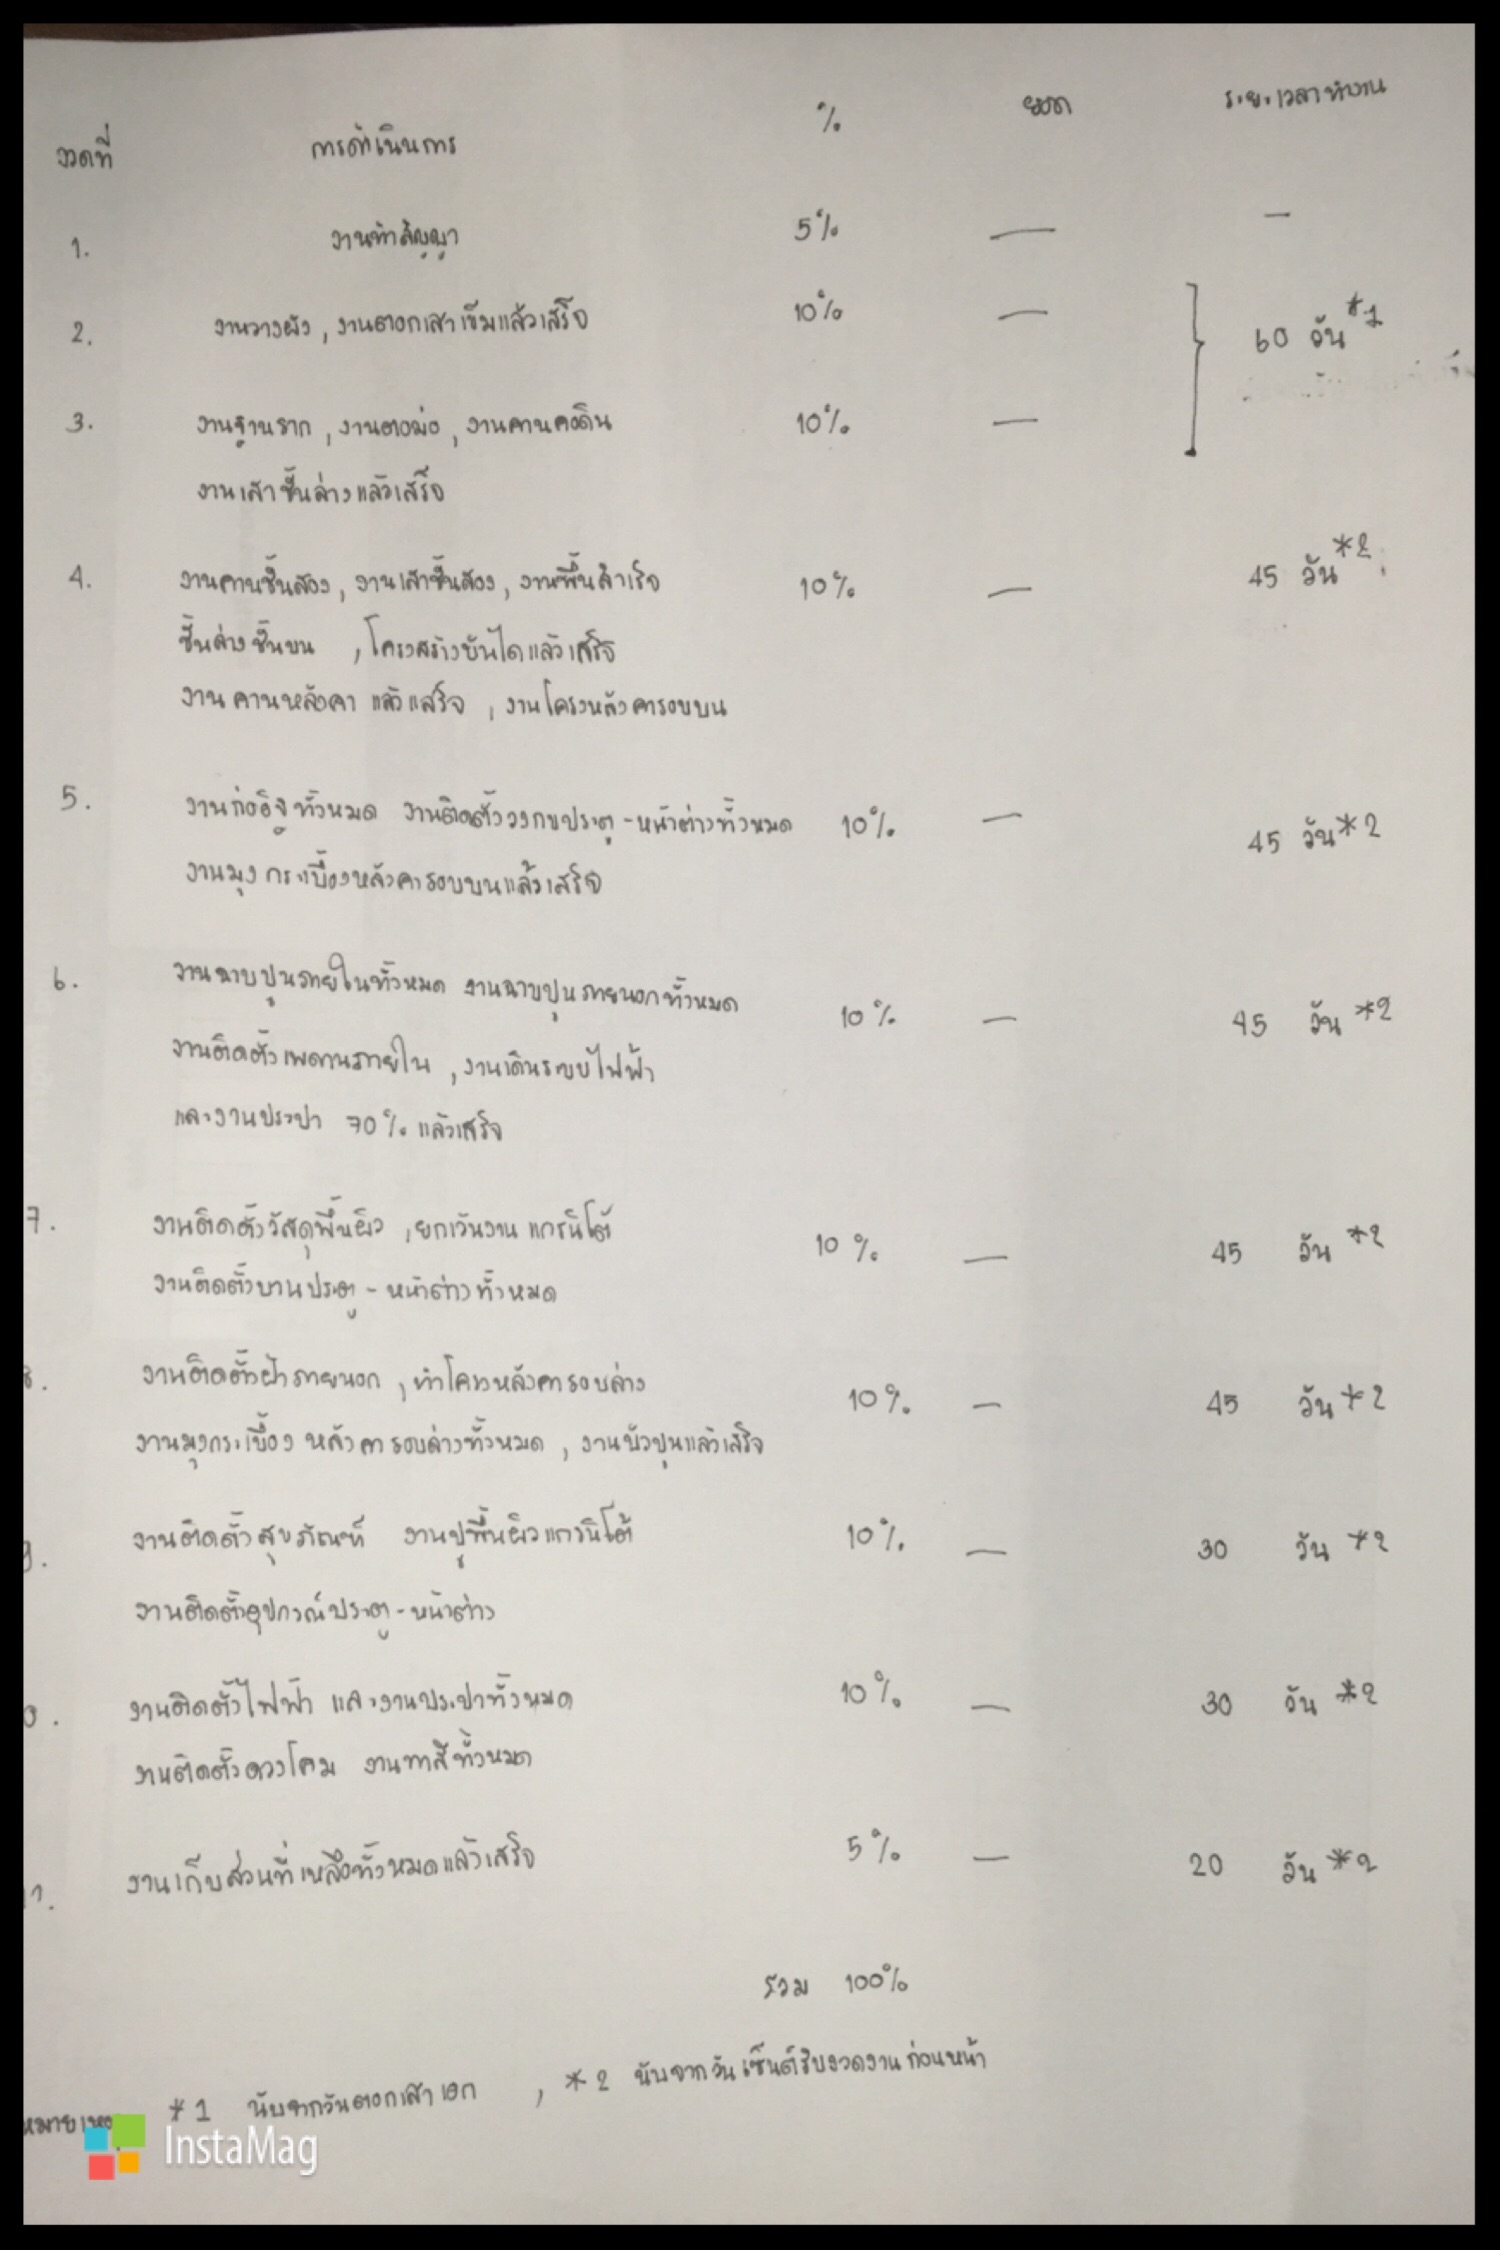 งวดที่ การดำเนินการ % ยอด ระยะเวลาทำงาน
1. งานทำสัญญา 5% — —
2. งานวางผัง , งานตอกเสาเข็มแล้วเสร็จ 10% — 60 วัน *1
3. งานฐานราก , งานตอม่อ , งานคานคอดิน 10% —
งานเสาชั้นล่างแล้วเสร็จ
4. งานคานชั้นสอง , งานเสาชั้นสอง , งานพื้นสำเร็จ 10% — 45 วัน *2
ชั้นล่างชั้นบน , โครงสร้างบันไดแล้วเสร็จ
งานคานหลังคา แล้วเสร็จ , งานโครงหลังคารอบบน
5. งานก่ออิฐทั้งหมด งานติดตั้งวงกบประตู - หน้าต่างทั้งหมด 10% — 45 วัน *2
งานมุงกระเบื้องหลังคารอบบนแล้วเสร็จ
6. งานฉาบปูนภายในทั้งหมด งานฉาบปูนภายนอกทั้งหมด 10% — 45 วัน *2
งานติดตั้งเพดานภายใน , งานเดินระบบไฟฟ้า
และงานประปา 70% แล้วเสร็จ
7. งานติดตั้งวัสดุพื้นผิว , ยกเว้นงาน แกรนิโต้ 10% — 45 วัน *2
งานติดตั้งบานประตู - หน้าต่างทั้งหมด
8. งานติดตั้งฝ้าภายนอก , ทำโครงหลังคารอบล่าง 10% — 45 วัน *2
งานมุงกระเบื้อง หลังคารอบล่างทั้งหมด , งานบัวปูนแล้วเสร็จ
9. งานติดตั้งสุขภัณฑ์ งานปูพื้นผิวแกรนิโต้ 10% — 30 วัน *2
งานติดตั้งอุปกรณ์ประตู - หน้าต่าง
0. งานติดตั้งไฟฟ้า และงานประปาทั้งหมด 10% — 30 วัน *2
งานติดตั้งดวงโคม งานทาสีทั้งหมด
11. งานเก็บส่วนที่เหลือทั้งหมดแล้วเสร็จ 5% — 20 วัน *2
รวม 100%
หมายเหตุ *1 นับจากวันตอกเสาเอก , *2 นับจากวันเซ็นต์รับงวดงานก่อนหน้า
InstaMag